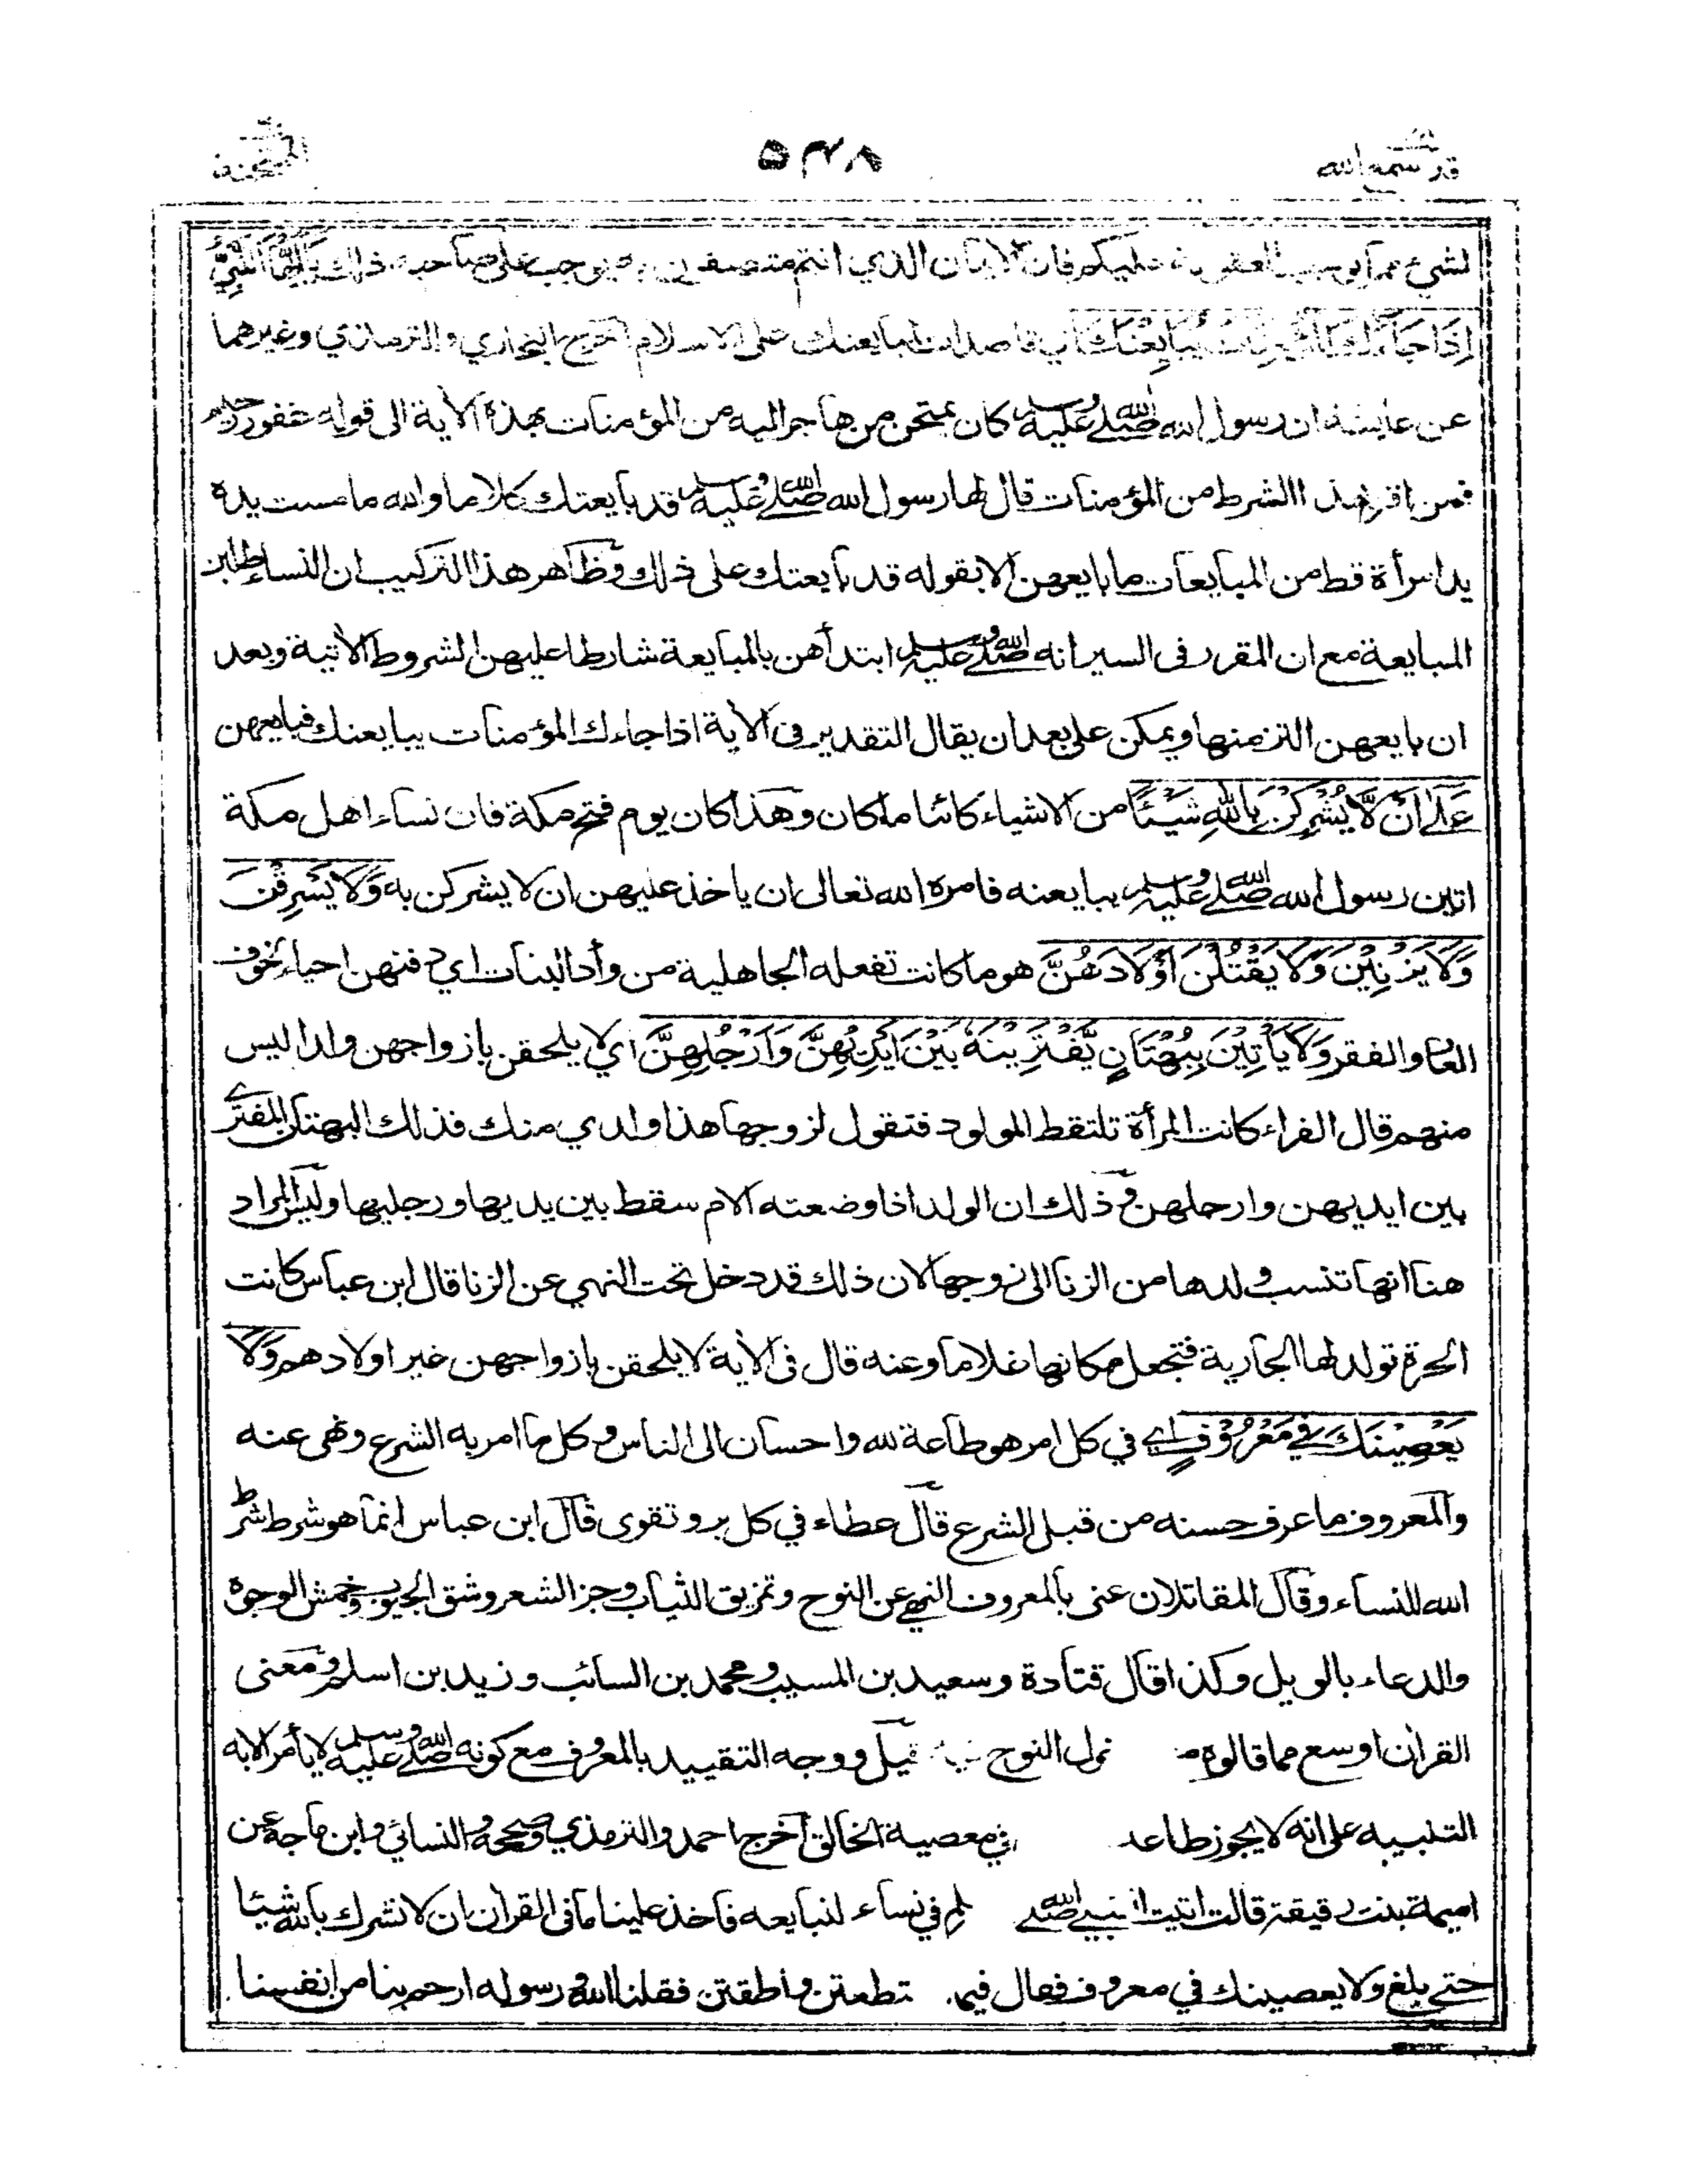 قد سمع الله ۵۳۸ الممتحنة
لشيء مما يوجب العقوبة عليكم فان الايمان الذي انتم متصفون به يوجب على صاحبه ذلك يَا اَيُّهَا النَّبِيُّ
اِذَا جَآءَكَ الْمُؤْمِنٰتُ يُبَايِعْنَكَ اي قاصدات لمبايعتك على الاسلام اخرج البخاري والترمذي وغيرهما
عن عايشة ان رسول الله صلى الله عليه وسلم كان يمتحن من هاجر اليه من المؤمنات بهذه الآية الى قوله غفور رحيم
فمن اقر بهذا الشرط من المؤمنات قال لها رسول الله صلى الله عليه وسلم قد بايعتك كلاما والله ما مست يده
يد امرأة قط من المبايعات ما بايعهن الا بقوله قد بايعتك على ذلك وظاهر هذا التركيب ان النساء طلبن
المبايعة مع ان المقرر فى السير انه صلى الله عليه وسلم ابتدأهن بالمبايعة شارطا عليهن الشروط الآتية وبعد
ان بايعهن التزمنها ويمكن على بعد ان يقال التقدير فى الآية اذا جاءك المؤمنات يبايعنك فبايعهن
عَلٰى اَنْ لَّا يُشْرِكْنَ بِاللّٰهِ شَيْئًا من الاشياء كائنا ما كان وهذا كان يوم فتح مكة فان نساء اهل مكة
اتين رسول الله صلى الله عليه وسلم يبايعنه فامره الله تعالى ان ياخذ عليهن ان لا يشركن به وَلَا يَسْرِقْنَ
وَلَا يَزْنِيْنَ وَلَا يَقْتُلْنَ اَوْلَادَهُنَّ هو ما كانت تفعله الجاهلية من وأد البنات اي دفنهن احياء لخوف
العار والفقر وَلَا يَأْتِيْنَ بِبُهْتَانٍ يَّفْتَرِيْنَهٗ بَيْنَ اَيْدِيْهِنَّ وَاَرْجُلِهِنَّ اي لا يلحقن بازواجهن ولدا ليس
منهم قال الفراء كانت المرأة تلتقط المولود فتقول لزوجها هذا ولدي منك فذلك البهتان المفترى
بين ايديهن وارجلهن وذلك ان الولد اذا وضعته الام سقط بين يديها ورجليها وليس المراد
هنا انها تنسب ولدها من الزنا الى زوجها لان ذلك قد دخل تحت النهي عن الزنا قال ابن عباس كانت
الحرة تولد لها الجارية فتجعل مكانها غلاما وعنه قال فى الآية لا يلحقن بازواجهن غير اولادهم وَلَا
يَعْصِيْنَكَ فِيْ مَعْرُوْفٍ اي في كل امر هو طاعة لله واحسان الى الناس وكل ما امر به الشرع ونهى عنه
والمعروف ما عرف حسنه من قبل الشرع قال عطاء في كل بر وتقوى قال ابن عباس انما هو شرط شرط
الله للنساء وقال المقاتلان عنى بالمعروف النهي عن النوح وتمزيق الثياب وجز الشعر وشق الجيوب وخمش الوجوه
والدعاء بالويل وكذا قال قتادة وسعيد بن المسيب ومحمد بن السائب وزيد بن اسلم ومعنى
القرآن اوسع مما قالوه النوح قيل ووجه التقييد بالمعروف مع كونه صلى الله عليه وسلم لا يأمر الا به
التنبيه على انه لا يجوز طاعة في معصية الخالق اخرج احمد والترمذي وصححه والنسائي وابن ماجة عن
اميمة بنت رقيقة قالت اتيت النبي صلى الله في نساء لنبايعه فاخذ علينا ما فى القرآن ان لا نشرك بالله شيئا
حتى بلغ ولا يعصينك في معروف فقال فيما استطعتن واطقتن فقلنا الله ورسوله ارحم بنا من انفسنا